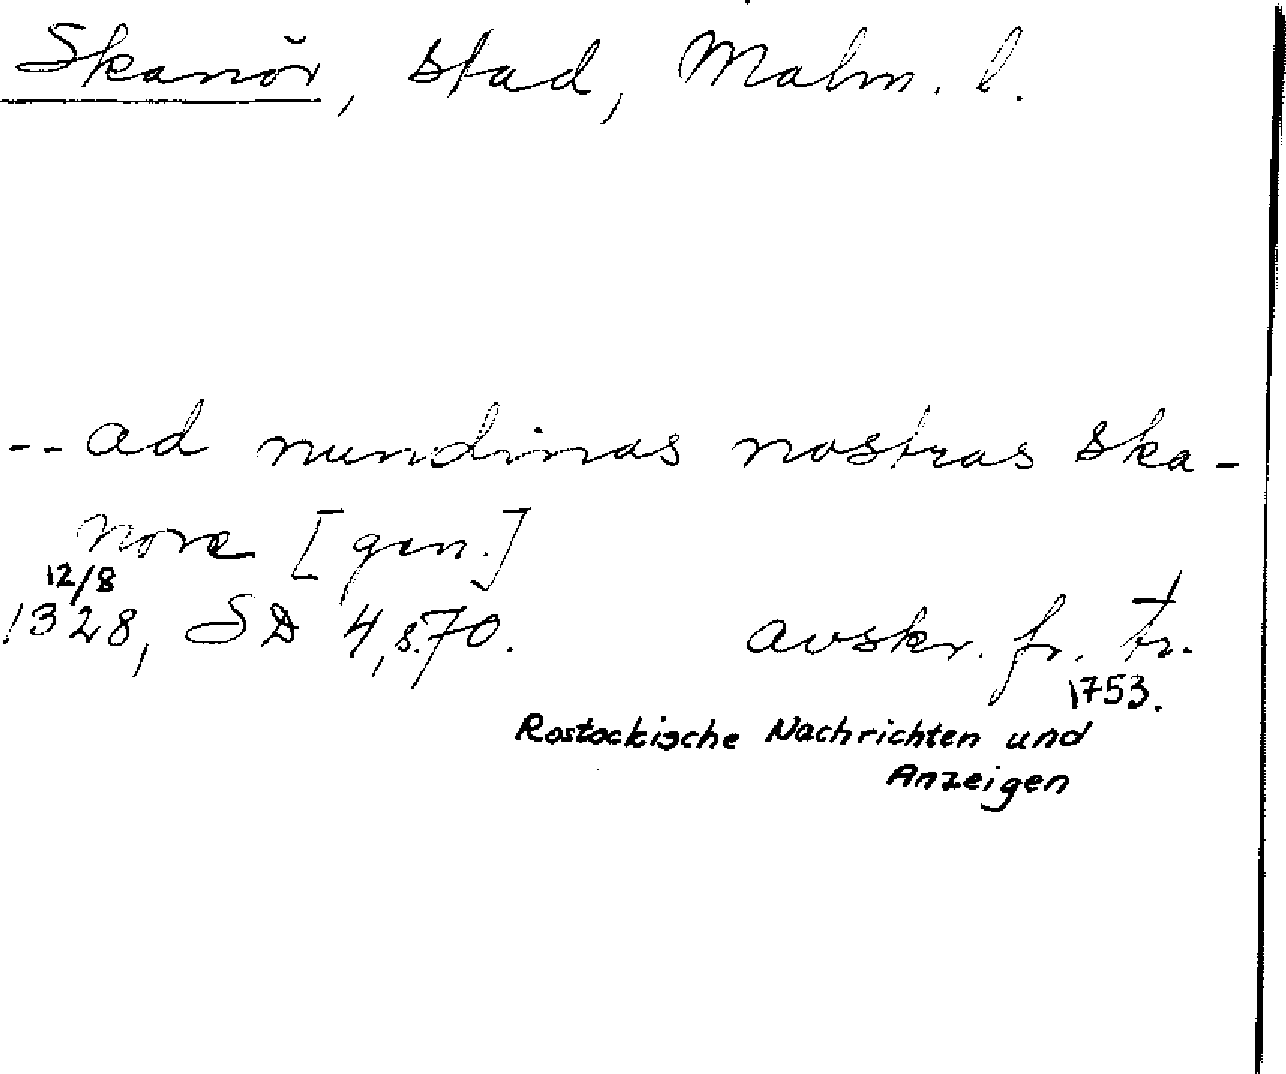 Skanör, stad, Malm. l.
-- ad nundinas nostras ska-
nore [gen.]
12/8
1328, SD 4, s. 70. avskr. fr. tr.
1753.
Rostockische Nachrichten und
Anzeigen